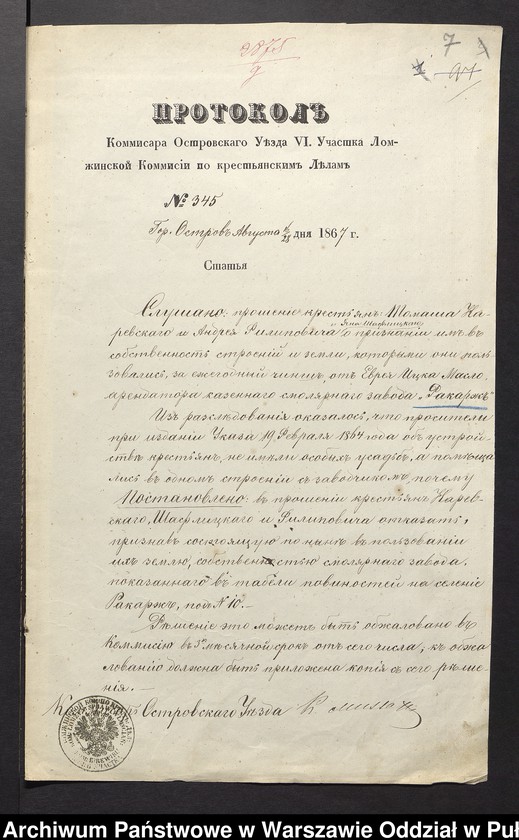 2875
9
7
97
ПРОТОКОЛЪ
Коммисара Островскаго Уѣзда VI. Участка Лом-
жинской Коммисіи по крестьянскимъ Дѣламъ
№ 345
Гор. Островъ Августа 16/28 дня 1867 г.
Статья
Слушано: прошеніе крестьянъ Томаша Ка-
и Яна Шафлицкаго
ревскаго и Андрея Филиповича о признаніи имъ въ
собственность строеній и земли, которыми они поль-
зовались, за ежегодный чиншъ, отъ Еврея Ицка Масло
арендатора казеннаго смолярнаго завода „Ракаржъ"
Изъ разслѣдованія оказалось, что просители
при изданіи Указа 19 Февраля 1864 года об устрой-
ствѣ крестьянъ, не имѣли особыхъ усадьбъ, а помѣща
лись въ одномъ строеніи съ заводчикомъ, почему
Постановлено: въ прошеніи крестьянъ Карев-
скаго, Шафлицкаго и Филиповича отказать,
признавъ состоящую по нынѣ въ пользованіи
ихъ землю, собственностью смолярнаго завода,
показаннаго въ табели повиностей на селеніе
Ракаржъ, подъ № 10. –
Рѣшеніе это можетъ быть обжаловано въ
Коммисію въ 3х мѣсячной срокъ отъ сего числа; къ обжа
лованію должна быть приложена копія съ сего рѣше-
нія. –
ръ Островскаго Уѣзда
Archiwum Państwowe w Warszawie Oddział w Puł